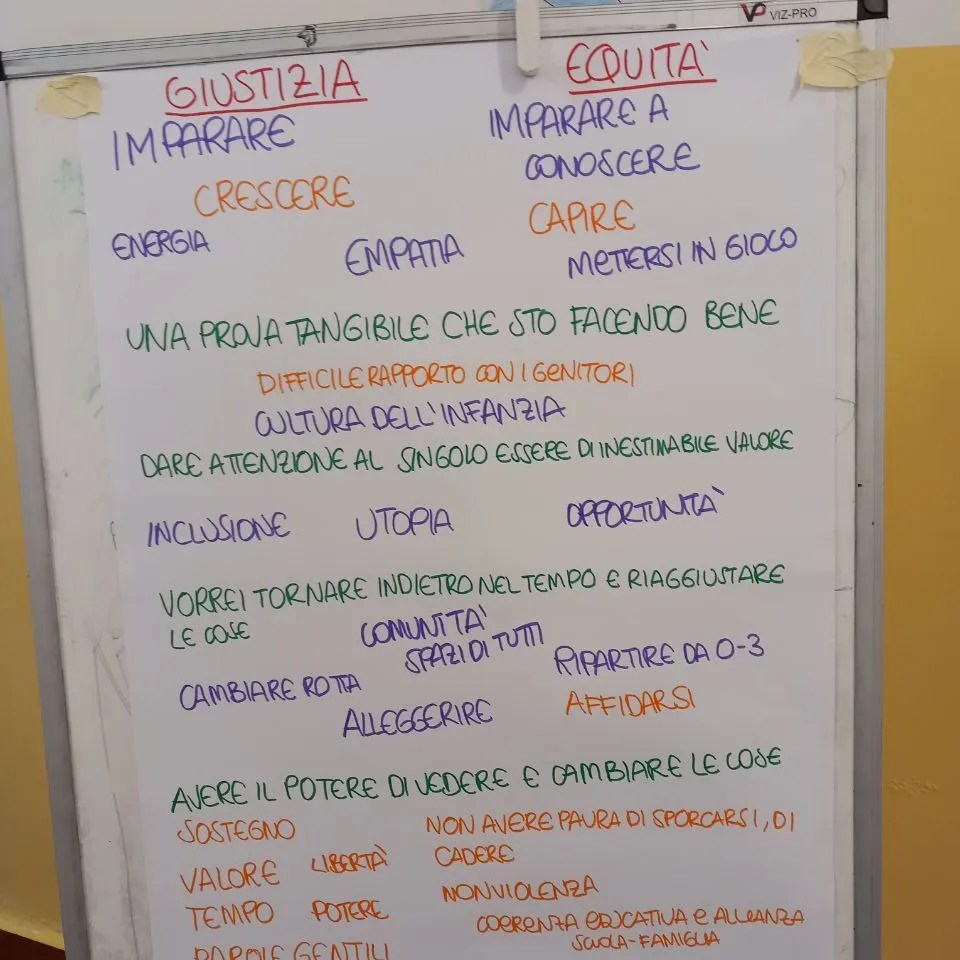 VP VIZ-PRO
GIUSTIZIA
EQUITÀ
IMPARARE
IMPARARE A
CONOSCERE
CRESCERE
CAPIRE
ENERGIA
EMPATIA
METTERSI IN GIOCO
UNA PROVA TANGIBILE CHE STO FACENDO BENE
DIFFICILE RAPPORTO CON I GENITORI
CULTURA DELL'INFANZIA
DARE ATTENZIONE AL SINGOLO ESSERE DI INESTIMABILE VALORE
INCLUSIONE UTOPIA OPPORTUNITÀ
VORREI TORNARE INDIETRO NEL TEMPO E RIAGGIUSTARE
LE COSE
COMUNITÀ
SPAZI DI TUTTI
RIPARTIRE DA 0-3
CAMBIARE ROTTA
ALLEGGERIRE
AFFIDARSI
AVERE IL POTERE DI VEDERE E CAMBIARE LE COSE
SOSTEGNO
NON AVERE PAURA DI SPORCARSI, DI
CADERE
VALORE LIBERTÀ
NONVIOLENZA
TEMPO POTERE
COERENZA EDUCATIVA E ALLEANZA
SCUOLA-FAMIGLIA
PAROLE GENTILI